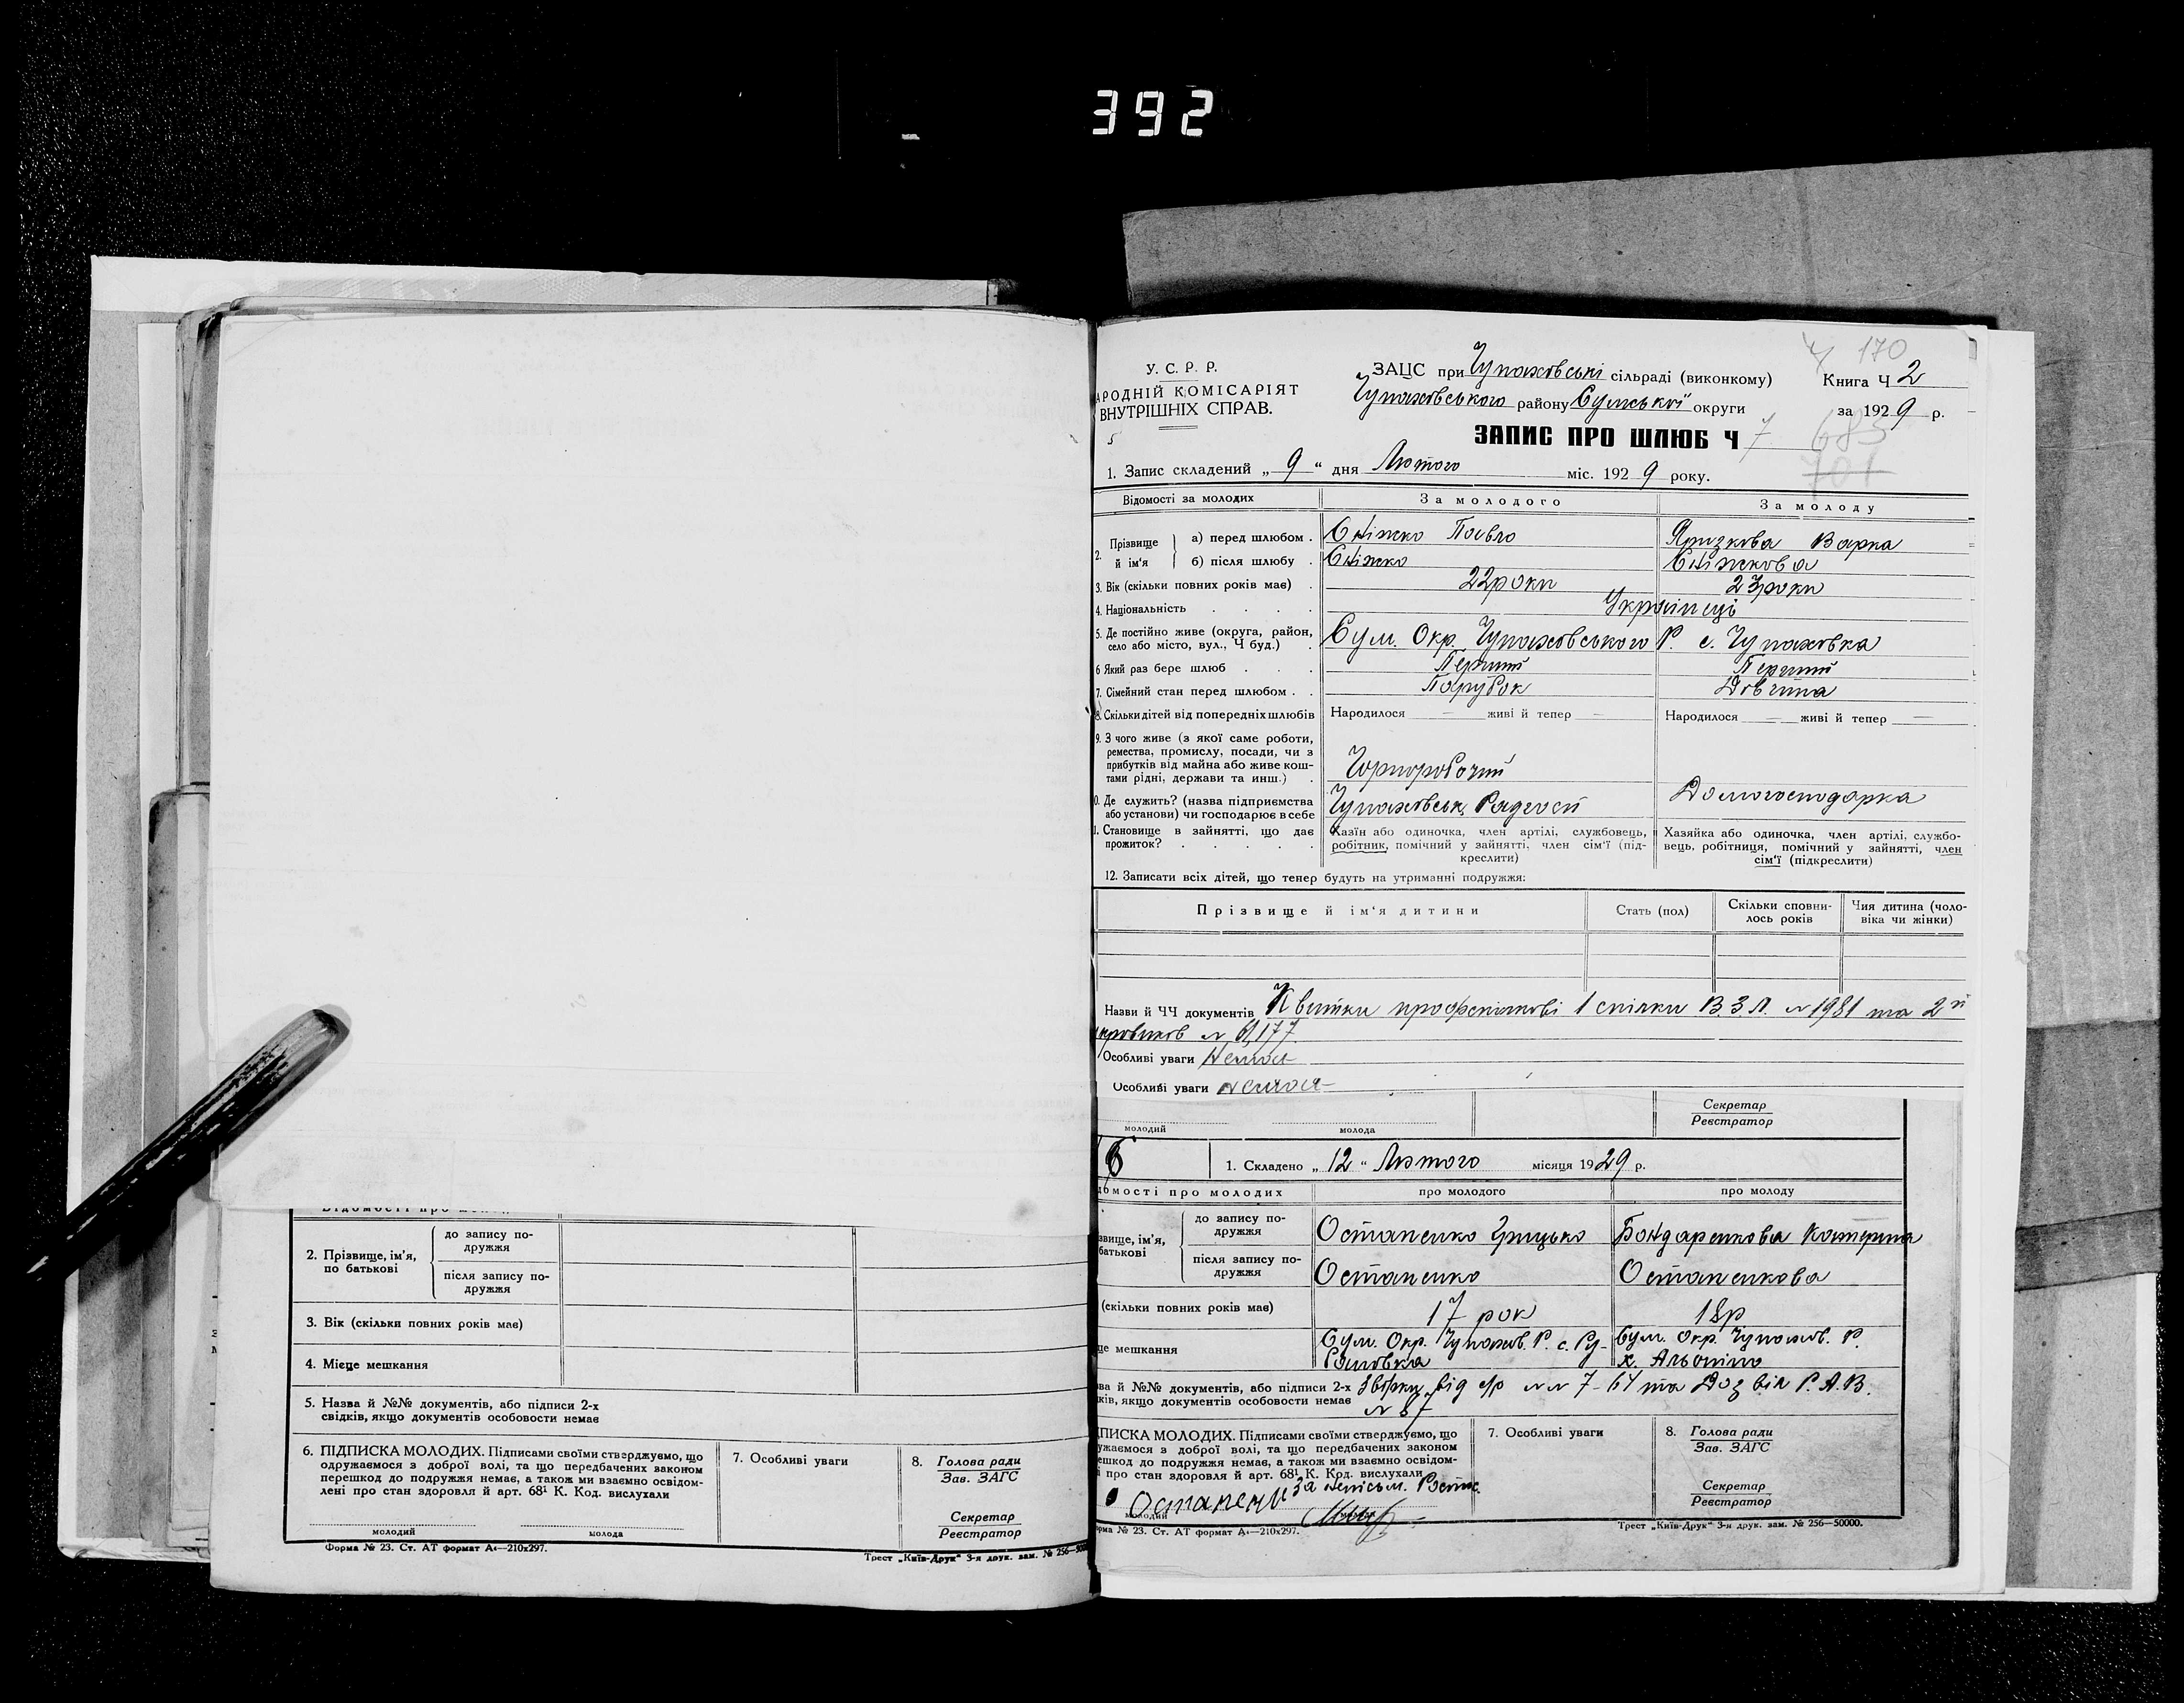 392
У. С. Р. Р.
АРОДНІЙ КОМІСАРІЯТ
ВНУТРІШНІХ СПРАВ.
ЗАЦС при Чупахівські сільраді (виконкому)
Чупахівського району Сумської округи
170
Книга Ч 2
за 1929 р.
ЗАПИС ПРО ШЛЮБ Ч 7
683
701
1. Запис складений „ 9 “ дня Лютого міс. 1929 року.
Відомості за молодих
За молодого
За молоду
2. Прізвище й ім'я
а) перед шлюбом . Сніжко Павло
Варка
б) після шлюбу . Сніжко
Сніжкова
3. Вік (скільки повних років має) . 22 роки
23 роки
4. Національність . . . . Українці
5. Де постійно живе (округа, район, село або місто, вул., Ч буд.) . Сум. Окр. Чупахівського Р. с. Чупахівка
6 Який раз бере шлюб . . . Перший
Перший
7. Сімейний стан перед шлюбом . . Парубок
Дівчина
8. Скільки дітей від попередніх шлюбів
Народилося — живі й тепер —
Народилося — живі й тепер —
9. З чого живе (з якої саме роботи,
ремества, промислу, посади, чи з
прибутків від майна або живе кош-
тами рідні, держави та инш.) .
Чорноробочий
0. Де служить? (назва підприємства
або установи) чи господарює в себе
Чупахівськ. Радгосп
Домогосподарка
1. Становище в зайнятті, що дає
прожиток? . . . . .
Хазїн або одиночка, член артілі, службовець,
робітник, помічний у зайнятті, член сім'ї (під-
креслити)
Хазяйка або одиночка, член артілі, службо-
вець, робітниця, помічний у зайнятті, член
сім'ї (підкреслити)
12. Записати всіх дітей, що тепер будуть на утриманні подружжя:
Прізвище й ім'я дитини
Стать (пол)
Скільки сповни-
лось років
Чия дитина (чоло-
віка чи жінки)
Назви й ЧЧ документів Квитки профспілкові 1 спілки В.З.Л. № 1981 та 2й
Особливі уваги Немає
Особливі уваги Немає
молодий
молода
Секретар
Реєстратор
6
1. Складено „ 12 “ Лютого місяця 1929 р.
домості про молодих
про молодого
про молоду
звище, ім'я,
батькові
до запису по-
дружжя
Остапенко Грицько
Бондаренкова Катерина
після запису по-
дружжя
Остапенко
Остапенкова
(скільки повних років має)
17 рок
18р
це мешкання
Сум. Окр. Чупахів. Р. с.
Сум. Окр. Чупахів. Р.
х.
зва й №№ документів, або підписи 2-х
дків, якщо документів особовости немає
від с/р №№ 7-64 та Дозвіл Р.А.В.
№ 87
ДПИСКА МОЛОДИХ. Підписами своїми стверджуємо, що
ужаємося з доброї волі, та що передбачених законом
ешкод до подружжя немає, а також ми взаємно освідом-
і про стан здоровля й арт. 68¹ К. Крд. вислухали
Остапенко
за неписьм.
молодий
7. Особливі уваги
8. Голова ради
Зав. ЗАГС
Секретар
Реєстратор
рма № 23. Ст. АТ формат А₄—210х297.
Трест „Київ-Друк“ 3-я друк. зам. № 256—50000.
2. Прізвище, ім'я,
по батькові
до запису по-
дружжя
після запису по-
дружжя
3. Вік (скільки повних років має)
4. Мієце мешкання
5. Назва й №№ документів, або підписи 2-х
свідків, якщо документів особовости немає
6. ПІДПИСКА МОЛОДИХ. Підписами своїми стверджуємо, що
одружаємося з доброї волі, та що передбачених законом
перешкод до подружжя немає, а також ми взаємно освідом-
лені про стан здоровля й арт. 68¹ К. Код. вислухали
молодий
молода
7. Особливі уваги
8. Голова ради
Зав. ЗАГС
Секретар
Реєстратор
Форма № 23. Ст. АТ формат А₄—210х297.
Трест „Київ-Друк“ 3-я друк. зам. № 256—500